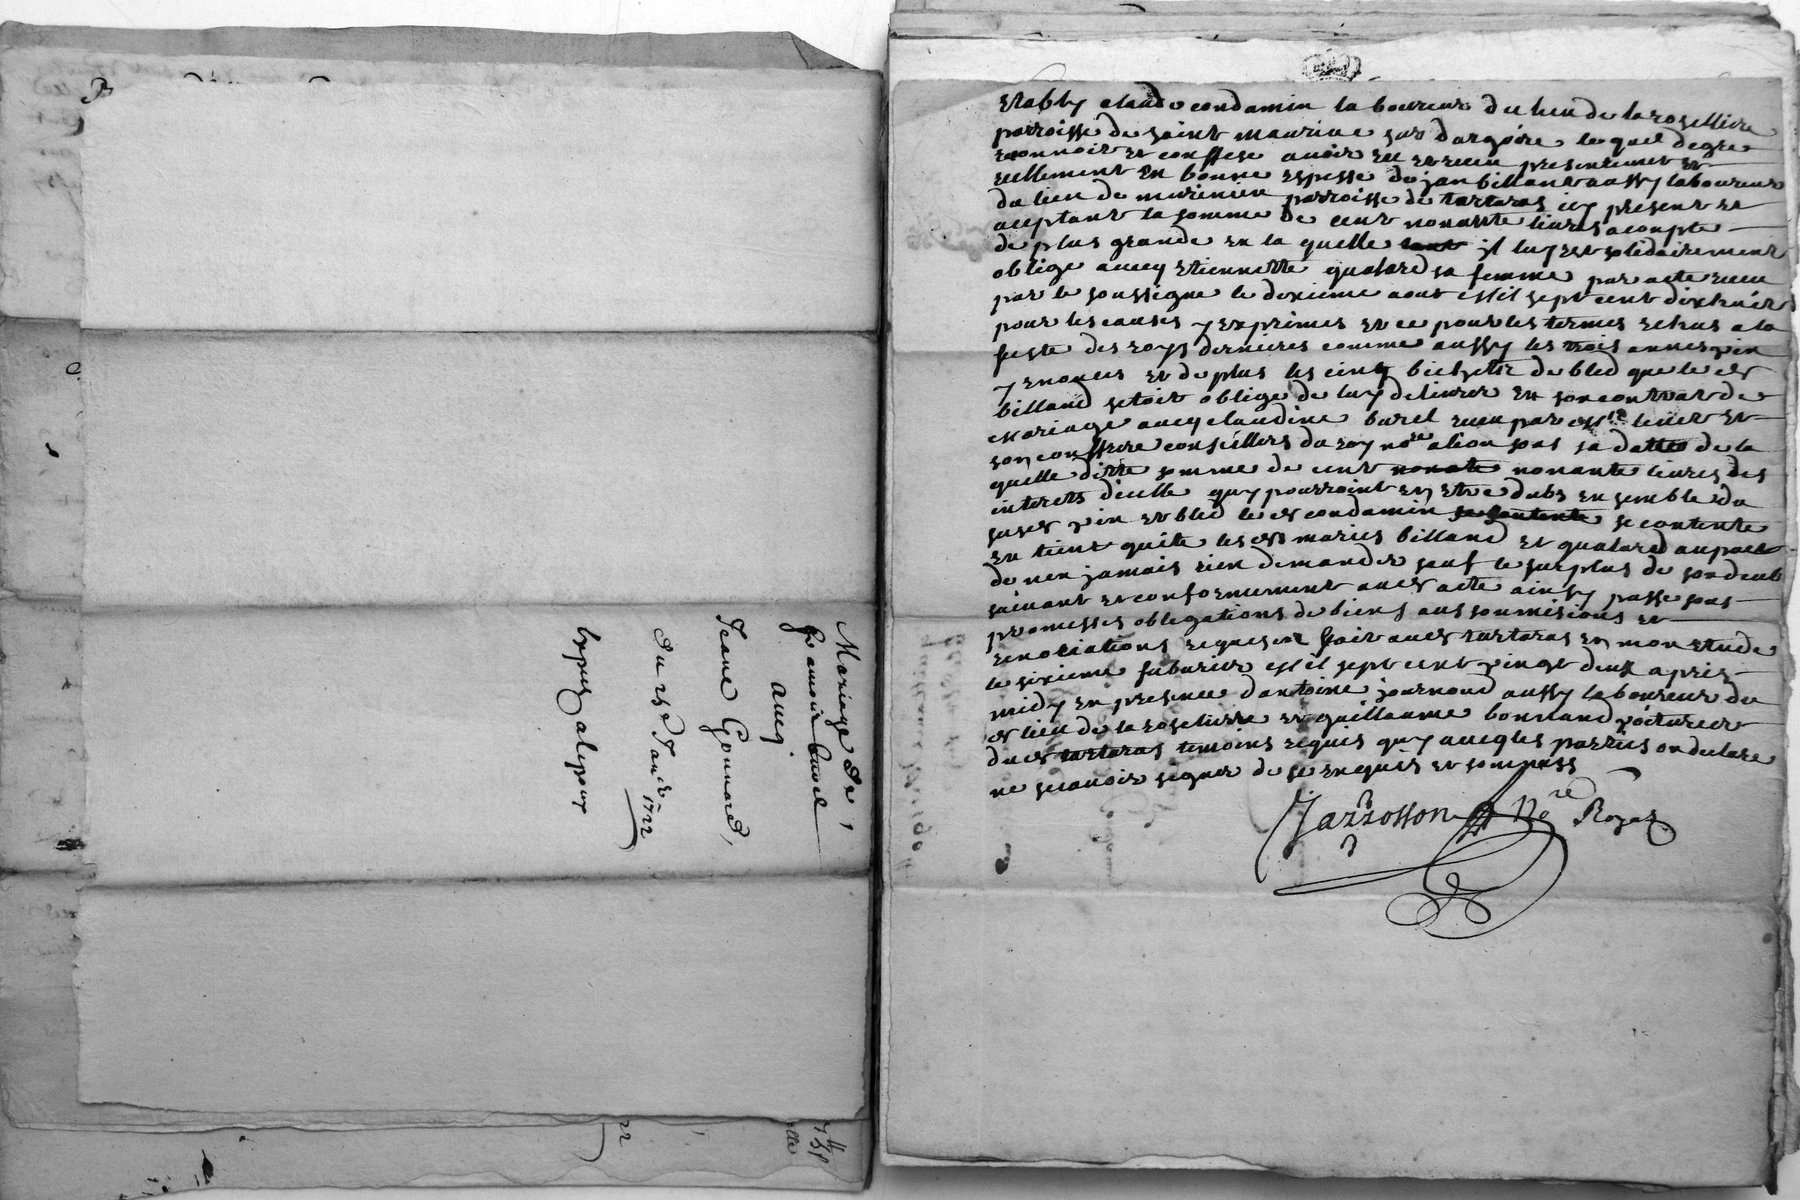 Mariage de
francois burel
avecq
Jeane Gonnard,
du 25e Janer 1722
Estably claude condamin laboureur du lieu de larosellière
parroisse de saint maurice sur dargoire lequel de gre
reconnoit et confesse avoir eu et receu presentement et
reellement en bonne espesse de jan billand aussy laboureur
du lieu de murinieu parroisse de tartaras icy present et
aceptant la somme de cent nonante livres acompte
de plus grande en la quelle il luy est solidairement
oblige avecq etiennette qualard sa femme par acte receu
par le soussigne le dixieme aout mil sept cent dixhuict
pour les causes y exprimes et ce pour les termes echus a la
feste des roys dernieres comme aussy les trois annes vin
y enonces et de plus les cinq bichets de bled que le dt
billand setoit oblige de luy delivrer en son contrat de
mariage avecq claudine burel receu par me et
son conffrere conseillers du roy nore alion pas sa datte de la
quelle ditte somme de cent nonante livres des
interets dicelle quy pourroint en etre dubs ensemble du
susdt vin et bled le dt condamin se contente
en tient quite les dts maries billand et qualard au pact
de nen jamais rien demander sauf le surplus de son deub
suivant et conformement audt acte ainsy passe par
promesses obligations de biens aus soumisions et
renonciations requeses fait audt tartaras en mon etude
le sixieme febvrier mil sept cent vingt deux apres
midy en presence dantoine journoud aussy laboureur du
dt lieu de la roseliere et guillaume bonnand voiturier
dudt tartaras temoins requis quy avecq les parties on declare
ne scavoir signer de ce enquis et sommes
Jazzosson No.re Royal